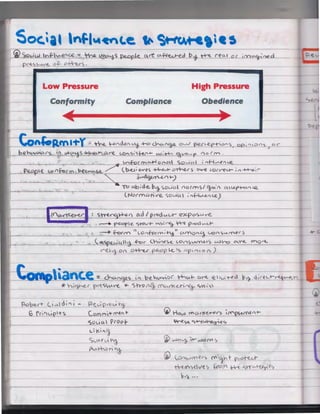 Social Influence & Strategies
Social Influence = the ways people are affected by the real or imagined
pressure of others.
Low Pressure High Pressure
Conformity Compliance Obedience
Conformity = the tendency to change our perceptions, opinions, or
behaviors in ways that are consistent with group norm
informational social influence
People conform because (believes that others are correct in their
judgement)
To abide by social norms/gain acceptance
(Normative social influence)
Marketer: strengthen ad/product exposure
people start using the product
form "conformity" among consumers
(especially for Chinese consumers who are more
rely on other people's opinion)
Compliance = changes in behavior that are elicited by direct request
* higher pressure * strong marketing skill
Robert Cialdini - Reciprocity
6 Principles Commitment How marketers implement
Social Proof these strategies
Liking
Scarcity
Authority
Consumers might protect
themselves from the strategies
by ...